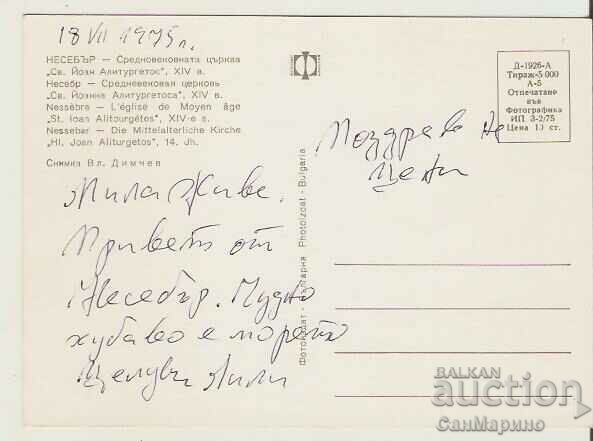 18 VII 1975 г.
НЕСЕБЪР — Средновековната църква
„Св. Йоан Алитургетос", XIV в.
Несебр — Средновековная церковь
„Св. Йоанна Алитургетоса", XIV в.
Nessèbre — L'église de Moyen âge
"St. Ioan Alitourgétos", XIV-e s.
Nessebar — Die Mittelalterliche Kirche
"Hl. Joan Aliturgetos", 14. Jh.
Снимка Вл. Димчев
Мила Живе.
Привет от
Несебър. Чудно
хубаво е морето
Целувки Лили
Фотоиздат · България · Photoizdat · Bulgaria
Д-1926-А
Тираж 5 000
А-5
Отпечатано
във
Фотографика
ИП 3-2/75
Цена 10 ст.
Поздрави на
Цени
BALKAN
auction
СанМарино